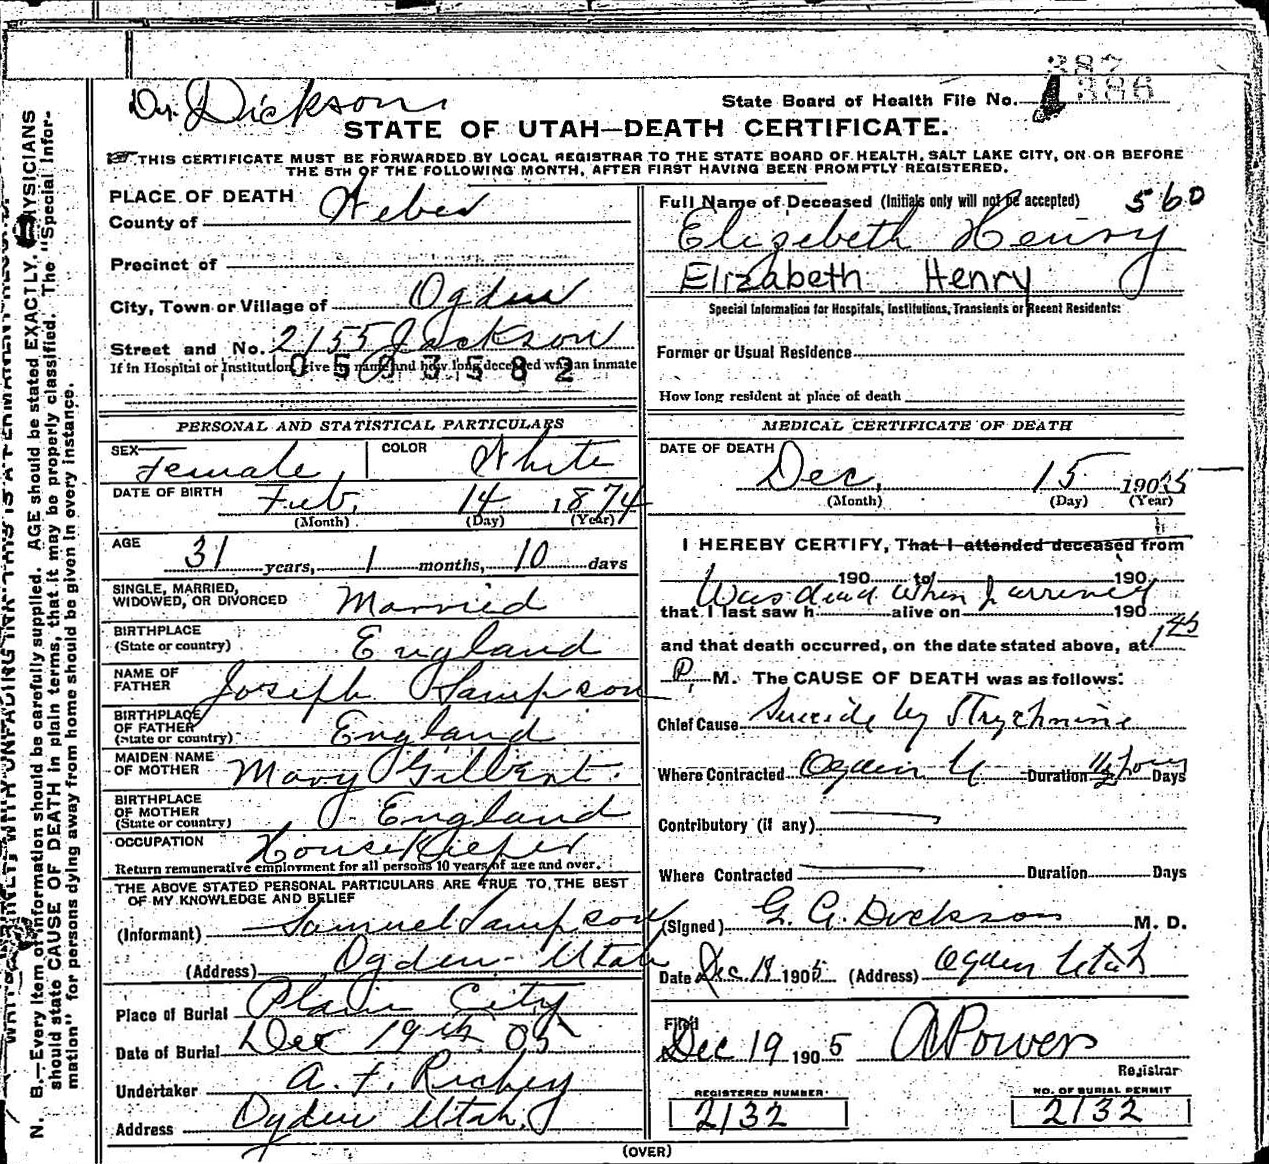 387
Dr. Dickson
State Board of Health File No. 386
STATE OF UTAH—DEATH CERTIFICATE.
THIS CERTIFICATE MUST BE FORWARDED BY LOCAL REGISTRAR TO THE STATE BOARD OF HEALTH, SALT LAKE CITY, ON OR BEFORE
THE 5TH OF THE FOLLOWING MONTH, AFTER FIRST HAVING BEEN PROMPTLY REGISTERED.
PLACE OF DEATH
County of Weber
Precinct of
City, Town or Village of Ogden
Street and No. 2155 Jackson
If in Hospital or Institution, give its name and how long deceased was an inmate
0503582
PERSONAL AND STATISTICAL PARTICULARS
SEX Female COLOR White
DATE OF BIRTH Feb. 14 1874
(Month) (Day) (Year)
AGE 31 years, 1 months, 10 days
SINGLE, MARRIED,
WIDOWED, OR DIVORCED Married
BIRTHPLACE
(State or country) England
NAME OF
FATHER Joseph Sampson
BIRTHPLACE
OF FATHER
(State or country) England
MAIDEN NAME
OF MOTHER Mary Gilbert.
BIRTHPLACE
OF MOTHER
(State or country) England
OCCUPATION House Kieper
Return remunerative employment for all persons 10 years of age and over.
THE ABOVE STATED PERSONAL PARTICULARS ARE TRUE TO THE BEST
OF MY KNOWLEDGE AND BELIEF
(Informant) Samuel Sampson
(Address) Ogden Utah
Place of Burial Plain City
Date of Burial Dec 19th 05
Undertaker A. F. Richey
Address Ogden Utah.
Full Name of Deceased (Initials only will not be accepted) 560
Elizebeth Henry
Elizabeth Henry
Special Information for Hospitals, Institutions, Transients or Recent Residents:
Former or Usual Residence
How long resident at place of death
MEDICAL CERTIFICATE OF DEATH
DATE OF DEATH
Dec. 15 1905
(Month) (Day) (Year)
I HEREBY CERTIFY, That I attended deceased from
190 to 190
Was dead when I arrived
that I last saw h alive on 190
and that death occurred, on the date stated above, at 145
P. M. The CAUSE OF DEATH was as follows:
Chief Cause Suicide by Strychnine
Where Contracted Ogden U Duration 1/2 hour Days
Contributory (if any)
Where Contracted Duration Days
(Signed) G. A. Dickson M. D.
Date Dec 18 1905 (Address) Ogden Utah
Filed
Dec 19 1905 A Powers
Registrar
REGISTERED NUMBER
2132
NO. OF BURIAL PERMIT
2132
(OVER)
N. B.—Every item of information should be carefully supplied. AGE should be stated EXACTLY. PHYSICIANS
should state CAUSE OF DEATH in plain terms, that it may be properly classified. The "Special Infor-
mation" for persons dying away from home should be given in every instance.